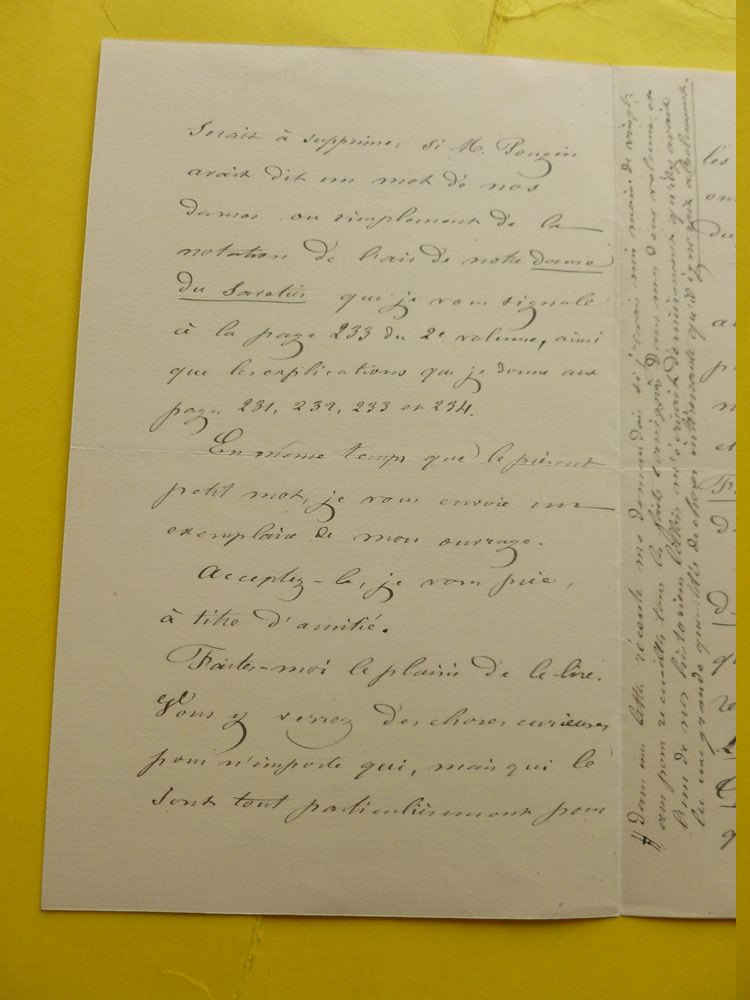 serait à supprimer si M. Pougin
avait dit un mot de nos
danses ou simplement de la
notation de l'air de notre danse
du Savetier que je vous signale
à la page 233 du 2e volume, ainsi
que les explications que je donne aux
pages 231, 232, 233 et 234.
En même temps que le présent
petit mot, je vous envoie un
exemplaire de mon ouvrage.
Acceptez-le, je vous prie,
à titre d'amitié.
Faites-moi le plaisir de le lire.
Vous y verrez des choses curieuses
pour n'importe qui, mais qui le
sont tout particulièrement pour
# dans une lettre récente me demandait si j'avais mis moins de vingt
ans pour recueillir tous les faits consignés dans mes deux volumes et
l'un de nos historiens m'écrivait dernièrement qu'il y avait
lu une grande quantité de choses intéressantes qu'il ignorait absolument.
les
on
du